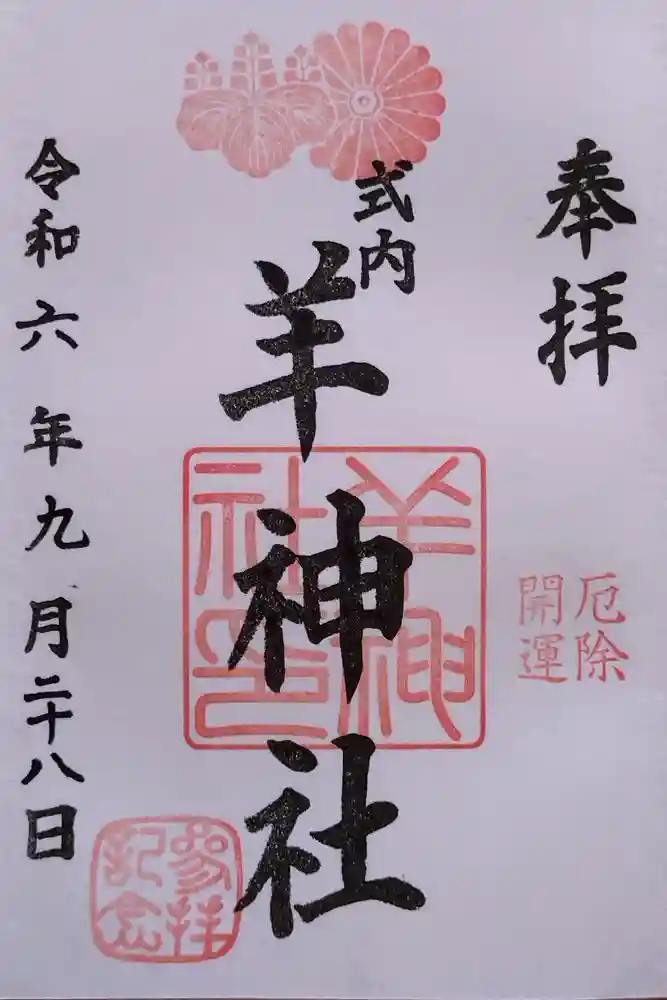 奉拝
厄除
開運
式内
羊神社
羊神社印
参拝
記念
令和六年九月二十八日